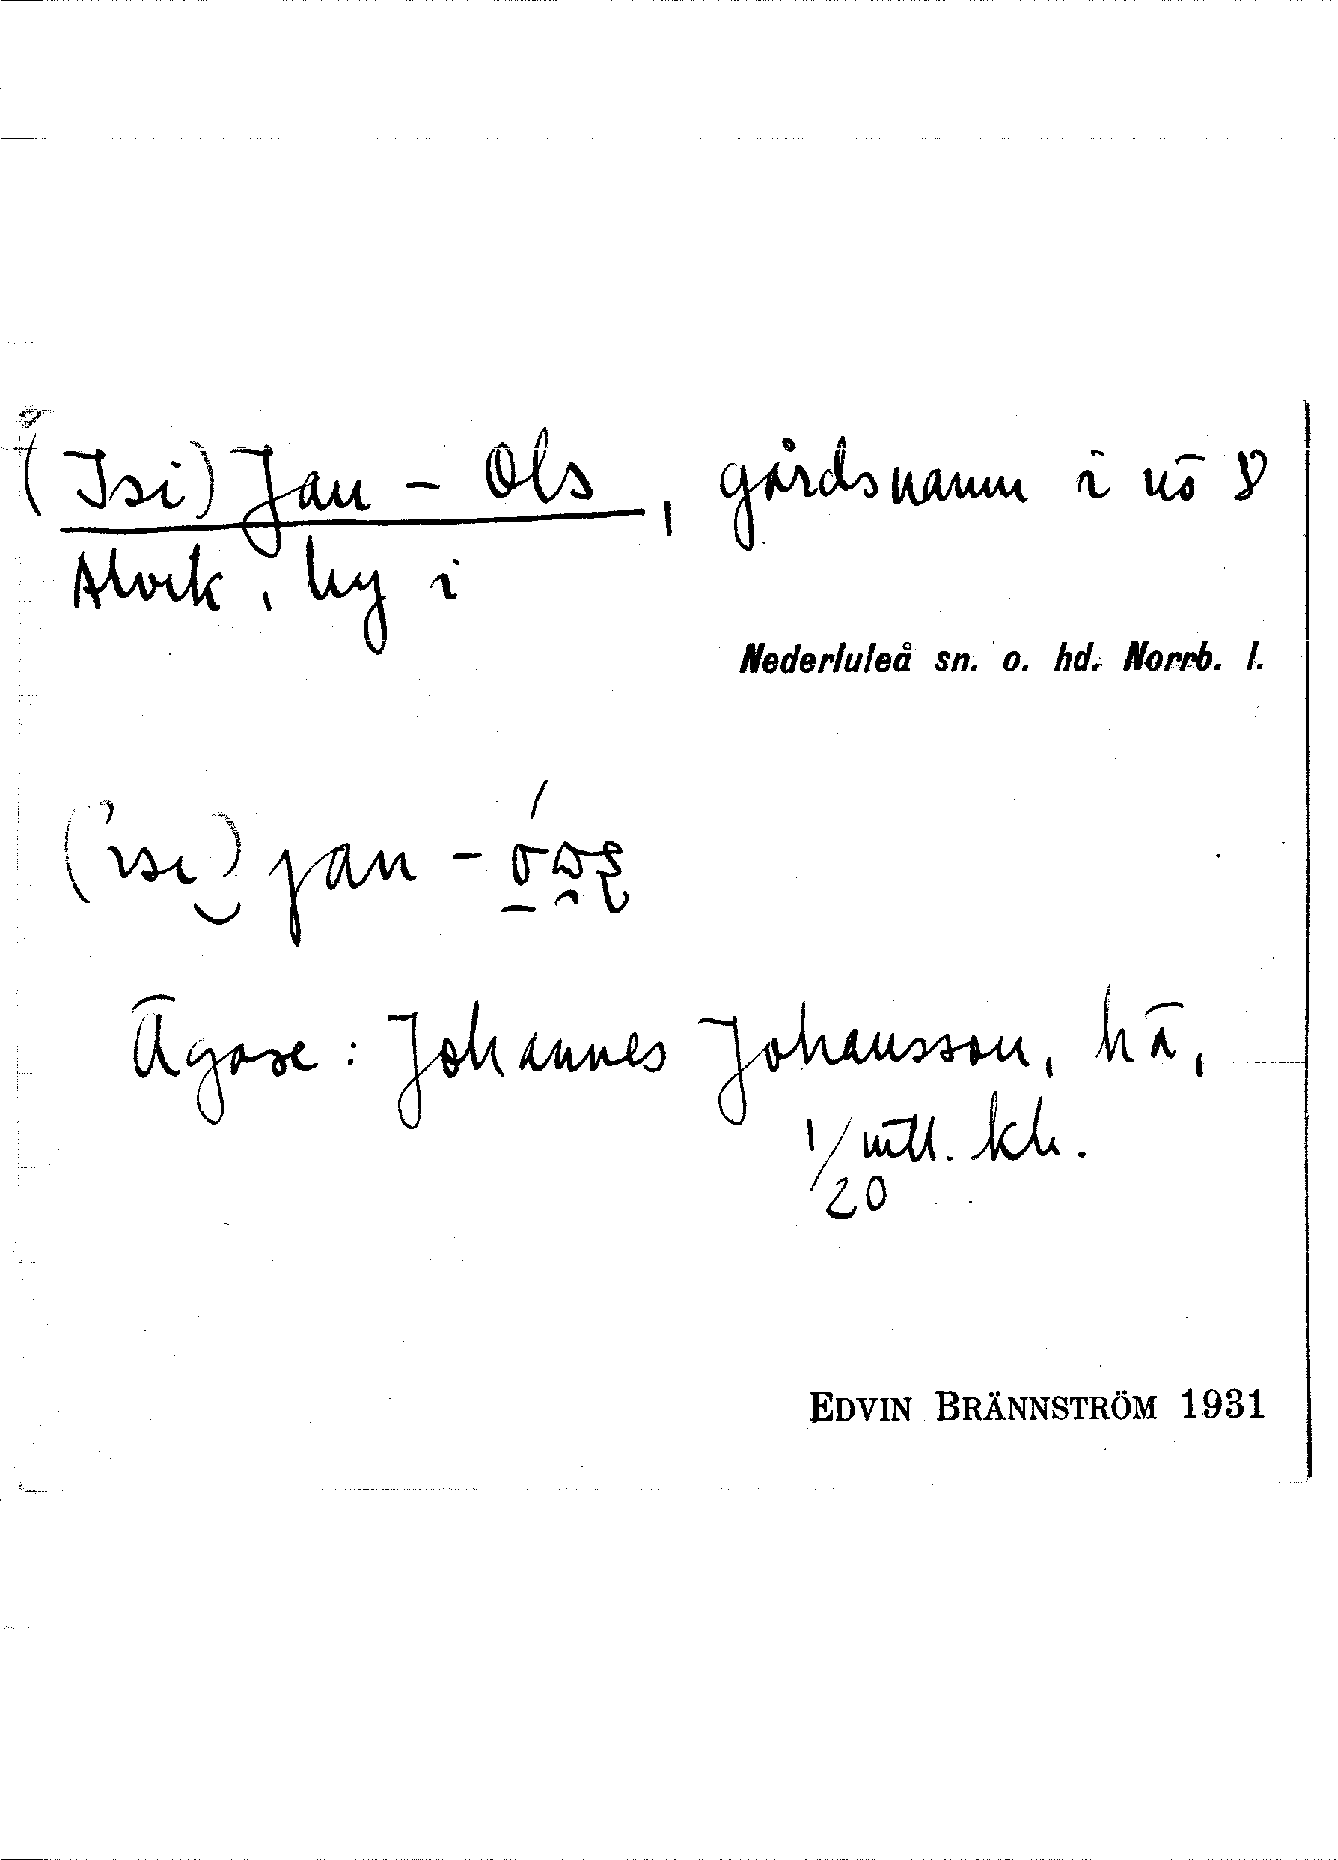 (Isi) Jan - Ols, gårdsnamn i nö 8
Alvik, by i
Nederluleå sn. o. hd. Norrb. l.
jan -
Ägare: Johannes Johansson, hä,
1/20 mtl. kh.
EDVIN BRÄNNSTRÖM 1931